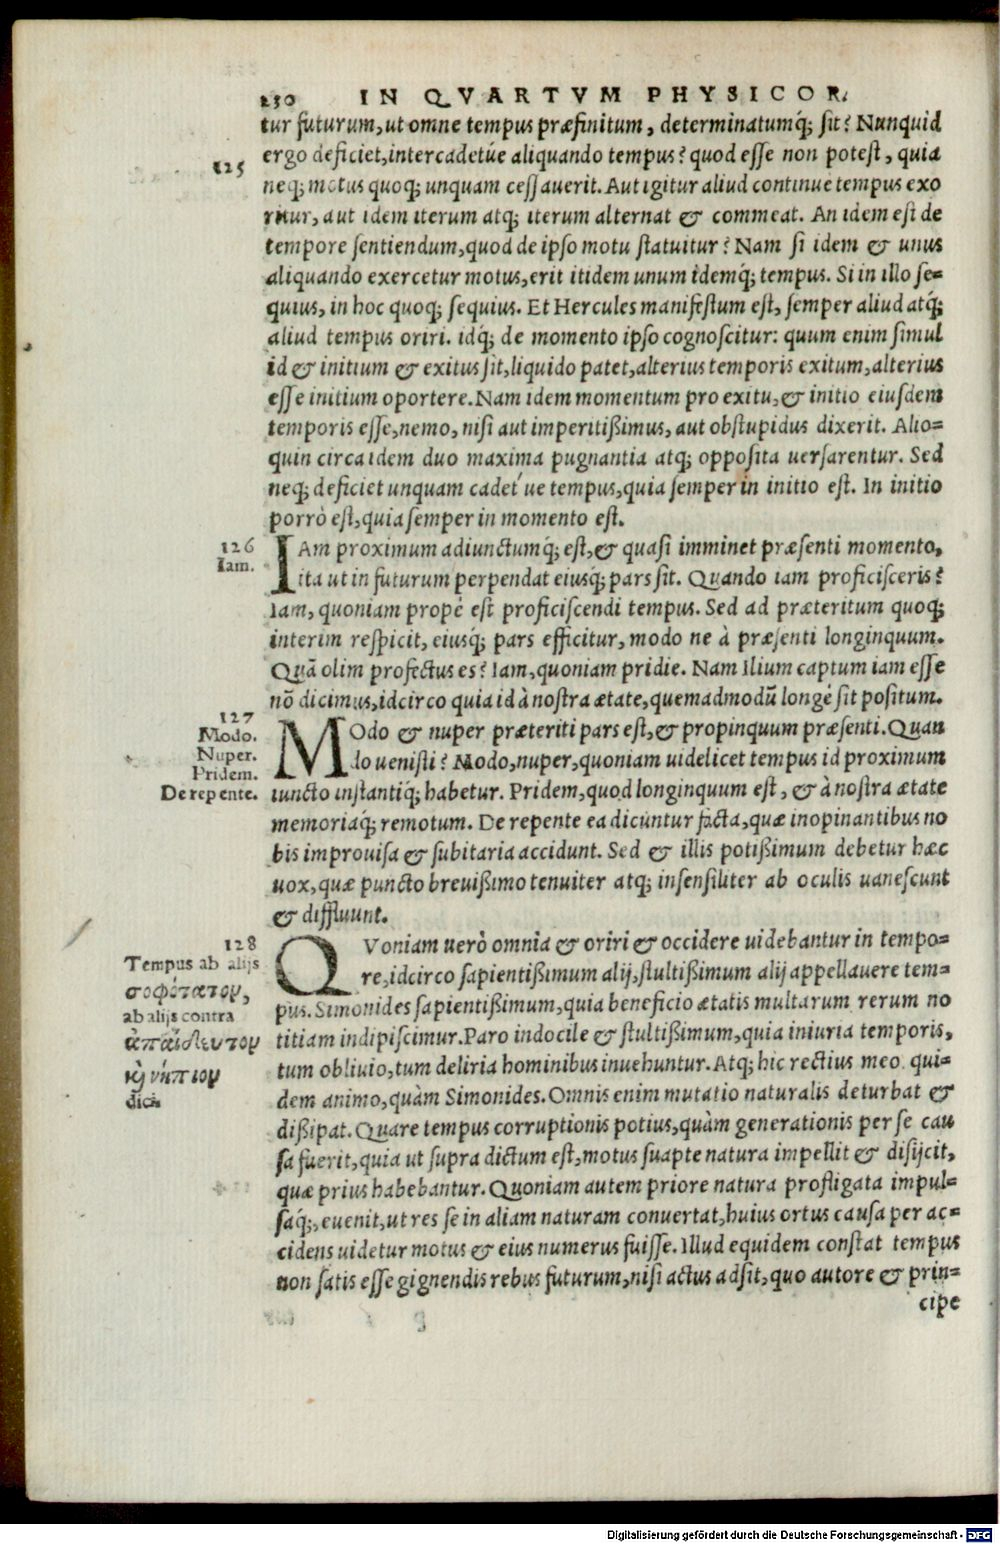 230 IN QVARTVM PHYSICOR.
tur futurum, ut omne tempus præfinitum, determinatumq́; sit? Nunquid
ergo deficiet, intercadetúe aliquando tempus? quod esse non potest, quia
125
neq; motus quoq; unquam cessauerit. Aut igitur aliud continue tempus exo
ritur, aut idem iterum atq; iterum alternat & commeat. An idem est de
tempore sentiendum, quod de ipso motu statuitur? Nam si idem & unus
aliquando exercetur motus, erit itidem unum idemq́; tempus. Si in illo se=
quius, in hoc quoq; sequius. Et Hercules manifestum est, semper aliud atq́;
aliud tempus oriri. idq́; de momento ipso cognoscitur: quum enim simul
id & initium & exitus sit, liquido patet, alterius temporis exitum, alterius
esse initium oportere. Nam idem momentum pro exitu, & initio eiusdem
temporis esse, nemo, nisi aut imperitißimus, aut obstupidus dixerit. Alio=
quin circa idem duo maxima pugnantia atq; opposita uersarentur. Sed
neq; deficiet unquam cadet´ue tempus, quia semper in initio est. In initio
porrò est, quia semper in momento est.
126
Iam.
IAm proximum adiunctumq́; est, & quasi imminet præsenti momento,
ita ut in futurum perpendat eiusq́; pars sit. Quando iam proficisceris?
Iam, quoniam propè est proficiscendi tempus. Sed ad præteritum quoq;
interim respicit, eiusq́; pars efficitur, modo ne à præsenti longinquum.
Quã olim profectus es? Iam, quoniam pridie. Nam Ilium captum iam esse
nõ dicimus, idcirco quia id à nostra ætate, quemadmodũ longè sit positum.
127
Modo.
Nuper.
Pridem.
De repente.
MOdo & nuper præteriti pars est, & propinquum præsenti. Quan
do uenisti? Modo, nuper, quoniam uidelicet tempus id proximum
iuncto instantiq́; habetur. Pridem, quod longinquum est, & à nostra ætate
memoriaq́; remotum. De repente ea dicuntur facta, quæ inopinantibus no
bis improuisa & subitaria accidunt. Sed & illis potißimum debetur hæc
uox, quæ puncto breuißimo tenuiter atq; insensiliter ab oculis uanescunt
& diffluunt.
128
Tempus ab alijs
σοφώτατον,
ab alijs contra
ἀπαίδευτον
κ̀ νήπιον
dici.
QVoniam uerò omnia & oriri & occidere uidebantur in tempo=
re, idcirco sapientißimum alij, stultißimum alij appellauere tem=
pus. Simonides sapientißimum, quia beneficio ætatis multarum rerum no
titiam indipiscimur. Paro indocile & stultißimum, quia iniuria temporis,
tum obliuio, tum deliria hominibus inuehuntur. Atq; hic rectius meo qui=
dem animo, quàm Simonides. Omnis enim mutatio naturalis deturbat &
dißipat. Quare tempus corruptionis potius, quàm generationis per se cau
sa fuerit, quia ut supra dictum est, motus suapte natura impellit & disijcit,
quæ prius habebantur. Quoniam autem priore natura profligata impul=
saq́;, euenit, ut res se in aliam naturam conuertat, huius ortus causa per ac=
cidens uidetur motus & eius numerus fuisse. Illud equidem constat tempus
non satis esse gignendis rebus futurum, nisi actus adsit, quo autore & prin=
cipe
Digitalisierung gefördert durch die Deutsche Forschungsgemeinschaft - DFG